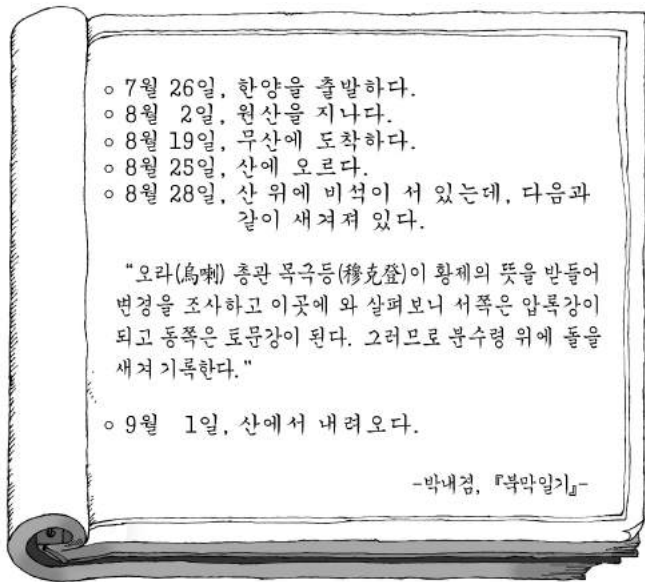 ○ 7월 26일, 한양을 출발하다.
○ 8월 2일, 원산을 지나다.
○ 8월 19일, 무산에 도착하다.
○ 8월 25일, 산에 오르다.
○ 8월 28일, 산 위에 비석이 서 있는데, 다음과
같이 새겨져 있다.
“오라(烏喇) 총관 목극등(穆克登)이 황제의 뜻을 받들어
변경을 조사하고 이곳에 와 살펴보니 서쪽은 압록강이
되고 동쪽은 토문강이 된다. 그러므로 분수령 위에 돌을
새겨 기록한다.”
○ 9월 1일, 산에서 내려오다.
-박내겸, 『북막일기』-